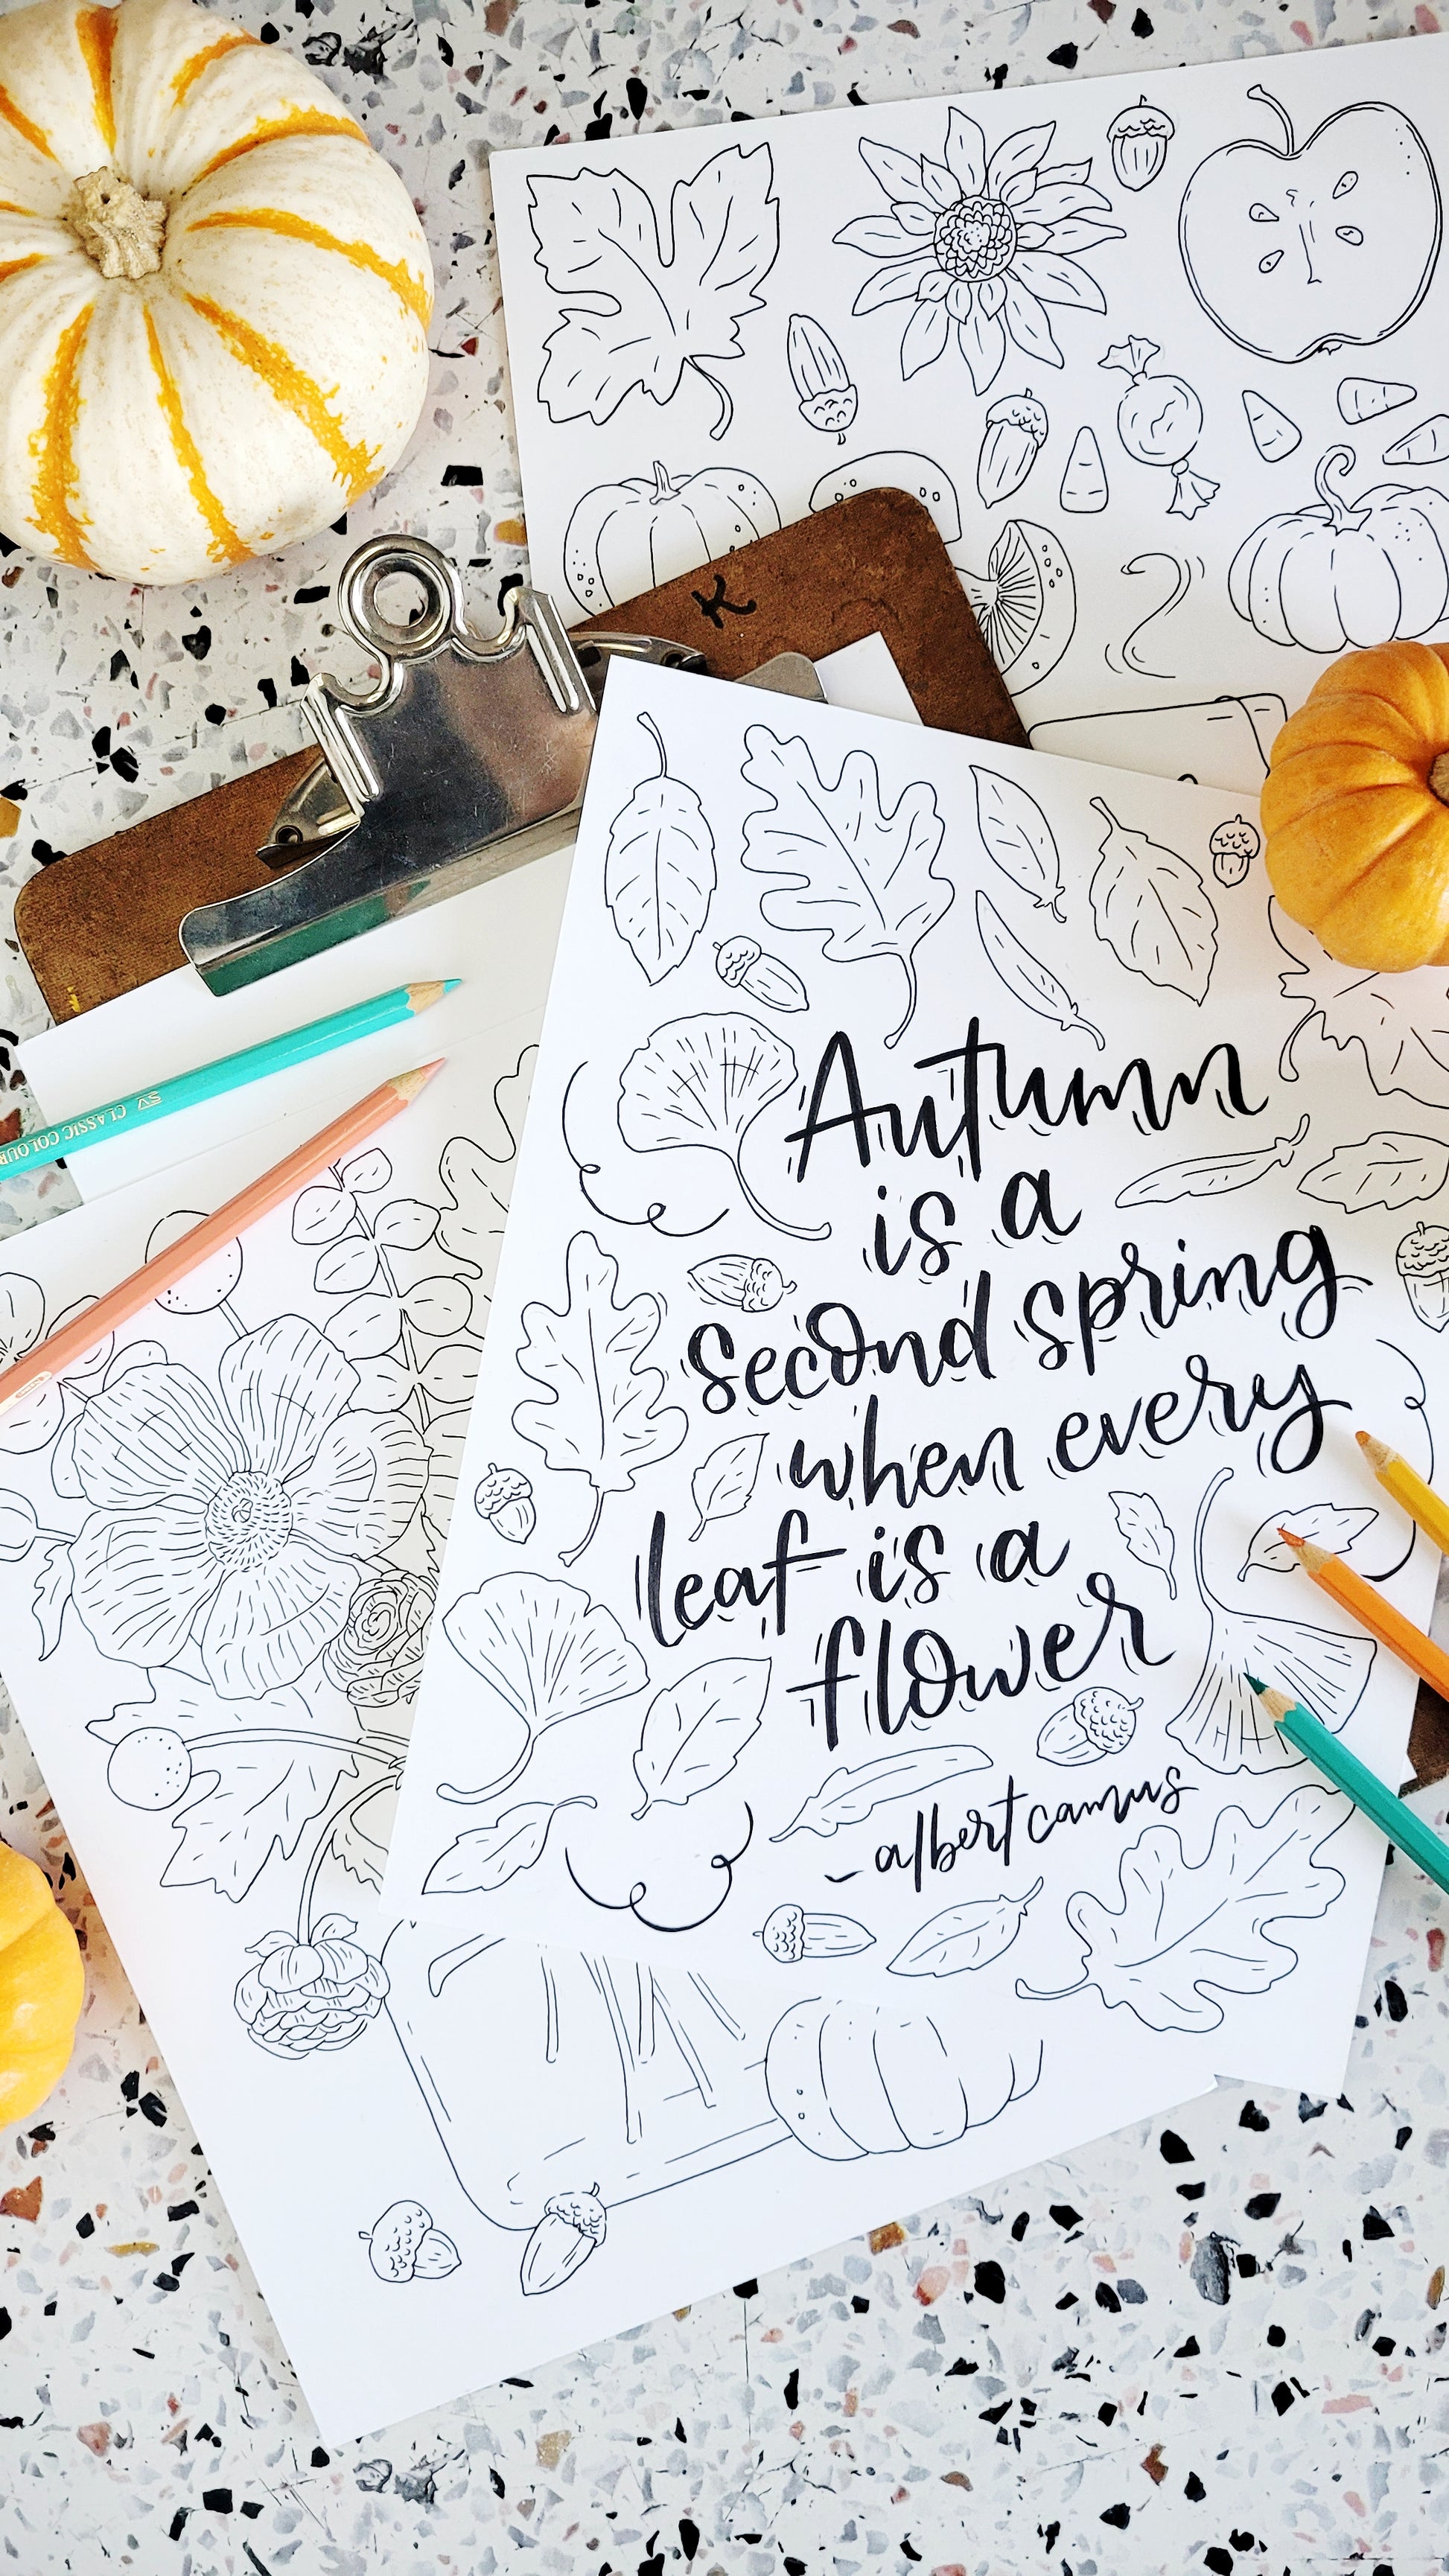 K
SV CLASSIC COLOUR
Autumn
is a
second spring
when every
leaf is a
flower
- albert camus